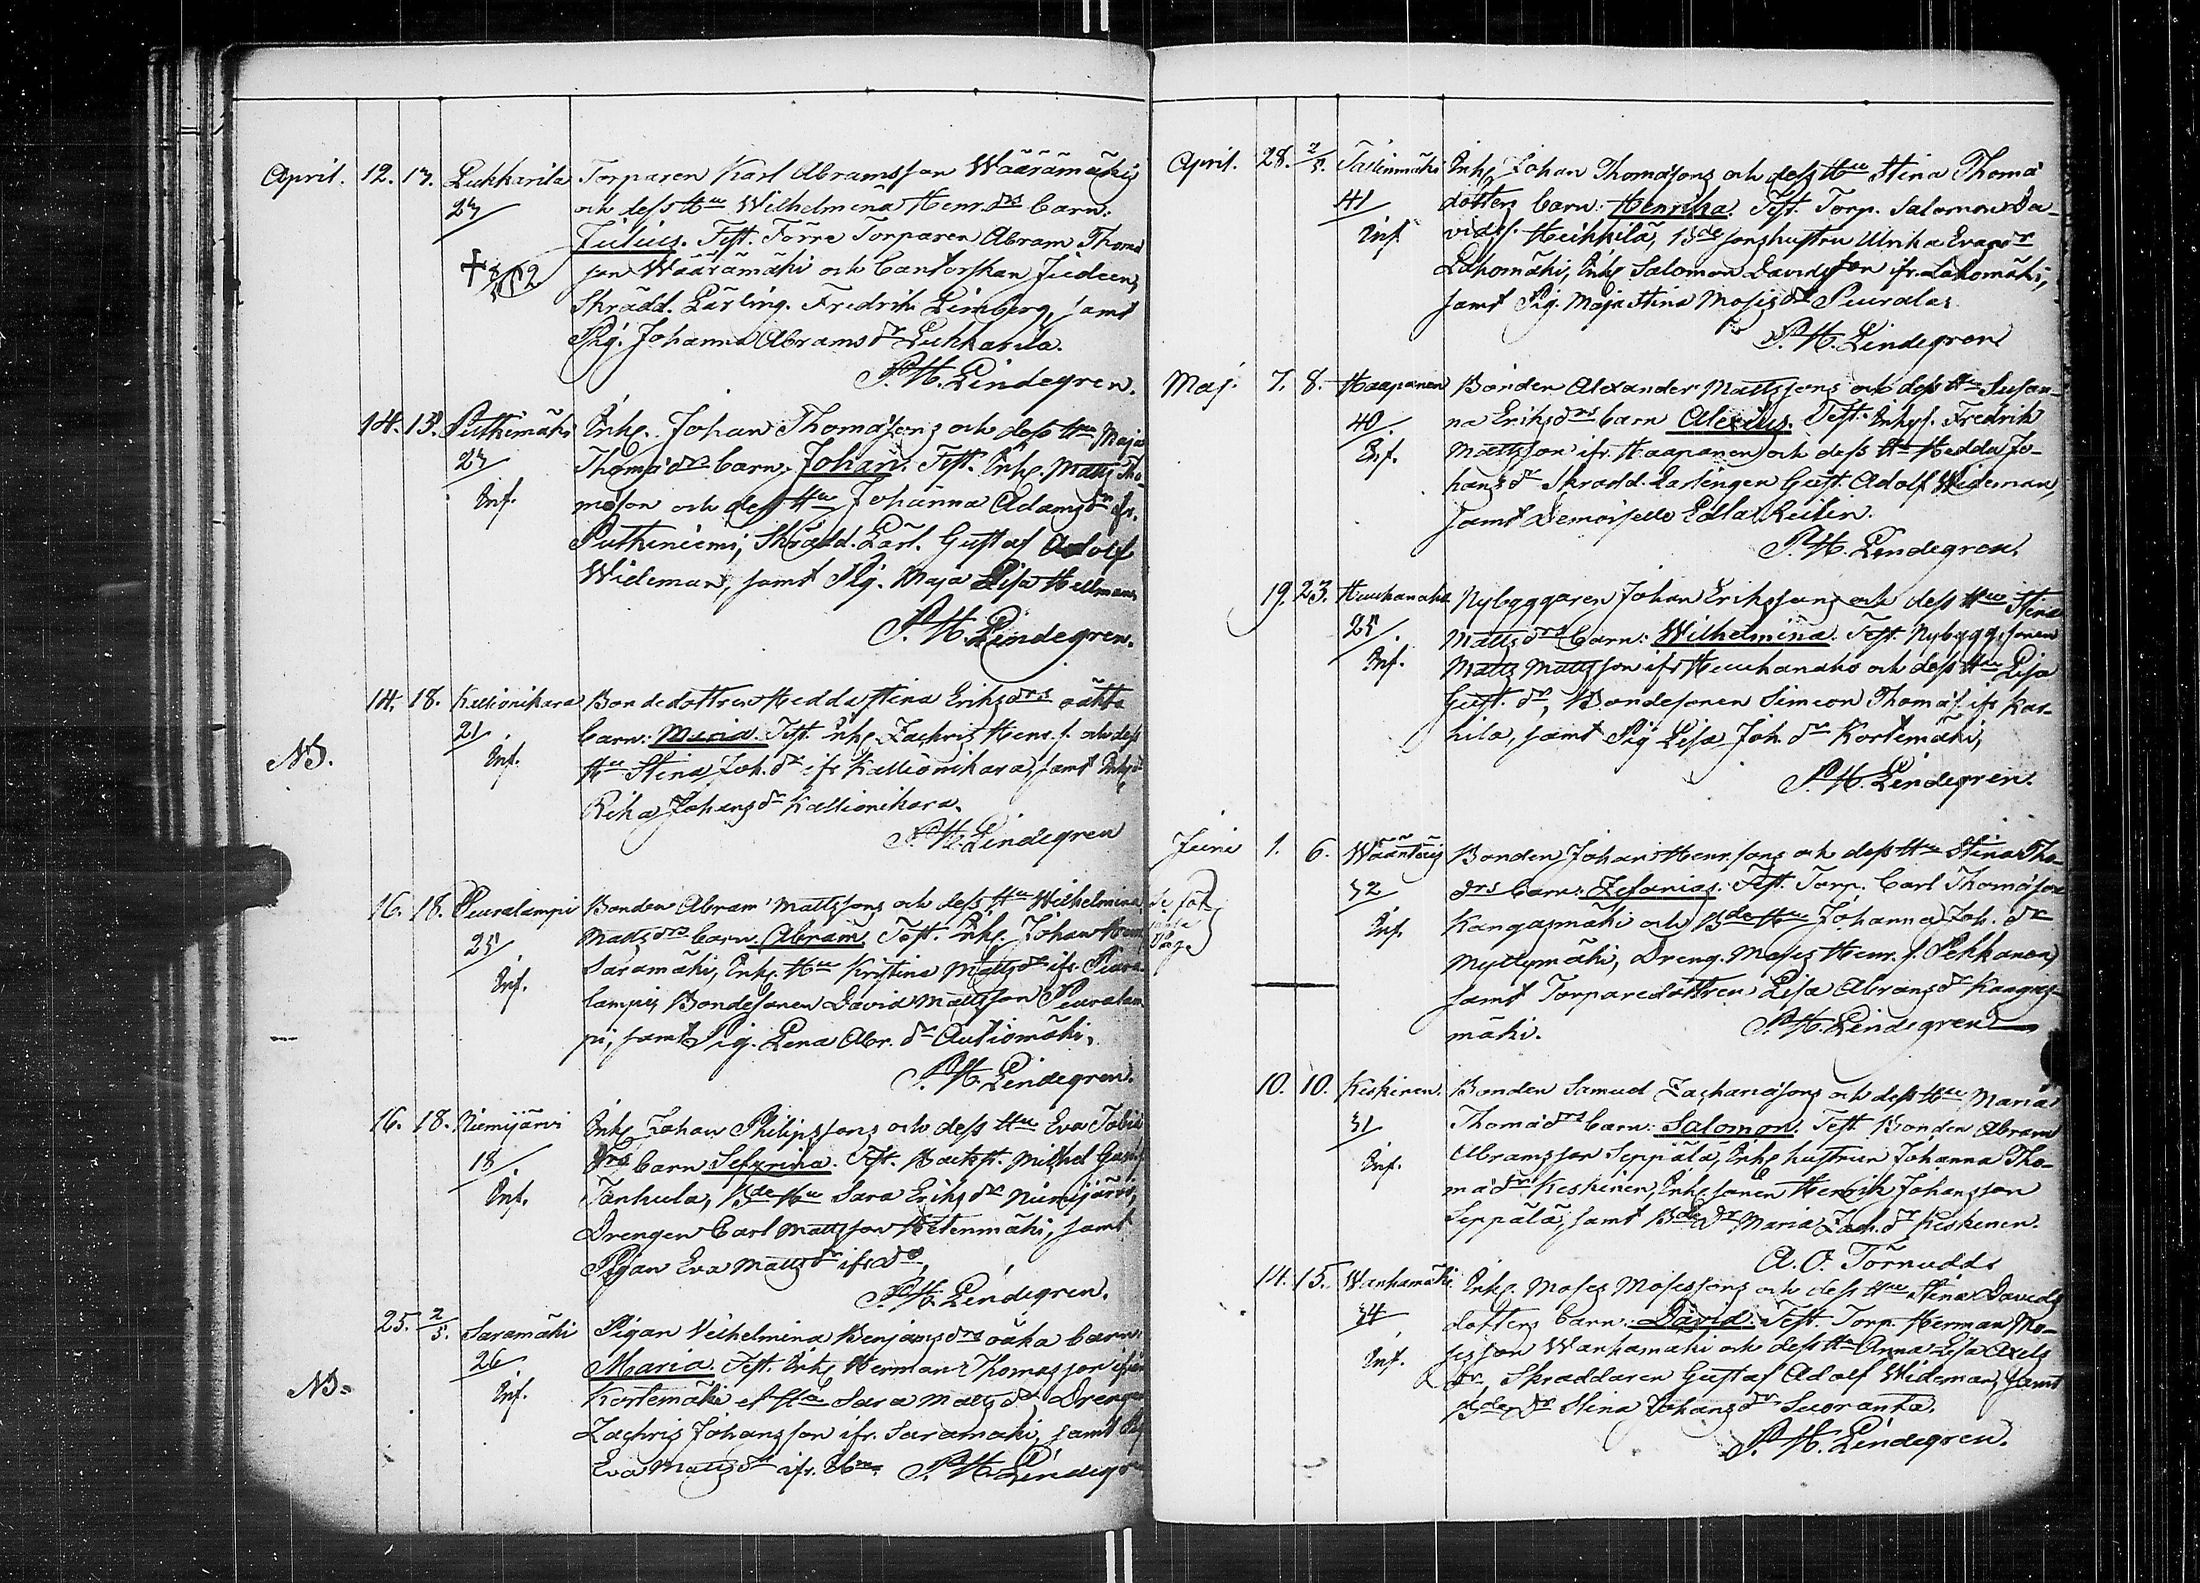 April. 12. 17. Lukkarila Torparen Karl Abramsson Wäärämäkis
27 och dess Hu Wilhelmina Henr. drs barn:
Julius. Test. Förre Torparen Abram Thoma
son Wäärämäki och Cantorskan
Skrädd. Lärling. Fredrik Limberg, samt
Pig. Johanna Abramsdr Lukkarila.
P. H. Lindegren.
14. 18. Putkimäki Inh. Johan Thomæsons och dess Hu Maja
27 Thomædrs barn Johan. Test. Inh. Matts Tho-
Inf. mæson och dess Hu Johanna Adamsdr ifr.
Putkiniemi, Skrädd. Lärl. Gustaf Adolf
Wideman, samt Pig. Maja Lisa Hellman
P. H. Lindegren.
14. 18. Kallionikara Bondedottren Hedda Stina Eriksdrs oäkta
21 barn: Maria. Test. Inh. Zachris Henr. s. och dess
NB. Inf. Hu Stina Joh. dr ifr Kallionikara, samt
Rika Johansdr Kallionikara.
P. H. Lindegren
16. 18. Peuralampi Bonden Abram Mattssons och dess Hu Wilhelmina
25 Mattsdrs barn Abram. Test. Inh. Johan
Inf. Saramäki, Inh. Hu Kristina Mattsdr ifr. Peura-
lampi, Bondesonen David Mattsson Peuralam
pi, samt Pig. Lena Abr. dr Autiomäki.
P. H. Lindegren.
16. 18. Niemijärvi Inh. Johan Philipssons och dess Hu Eva Tobiæ
18 drs barn Sefrina. Test. Mikhel
Inf. Tarkula, Bde Hu Sara Eriksdr Niemijärvi,
Drengen Carl Mattsson Hetenmäki, samt
Pigan Eva Mattsdr ifr do
P. H. Lindegren.
25. 2/5. Saramäki Pigan Vilhelmina Benjamsdrs oäkta barn:
26 Maria. Test. Inh. Herman Thomasson ifrån
NB. Inf. Kortemäki et Hu Sara Mattsdr Drengen
Zachris Johansson ifr. Saramäki, samt
Eva Mattsdr ifr. P. H. Lindegr
April. 28. 2/5. Tallinmäki Inh. Johan Thomæsons och dess Hu Stina Thomæ
41 dotters barn: Henrika. Test. Torp. Salomon Da-
Inf. vids. Heikkilä, Bde sonshustru Ulrika Evagr
Lahomäki, Inh. Salomon Davidsson ifr. Lahomäki,
samt Pig. Maja Stina Mosis dr Peurala.
P. H. Lindegren
Maj. 7. 8. Haapanen Bonden Alexander Mattssons och dess Hu Susan-
40 na Eriksdrs barn Alexius. Test. Fredrik
Inf. Mattsson ifr Haapanen och dess Hu Hedda Jo-
hansdr Skrädd. Lärlingen Gust. Adolf Wideman,
samt Demoiselle Edla Reilin.
P. H. Lindegren.
19. 23. Huuhanaho Nybyggaren Johan Erikssons och dess Hu Stina
25 Mattsdrs barn: Wilhelmina. Test. Nybyggesonen
Inf. Matts Mattsson ifr Huuhanaho och dess Hu Lisa
Gust. dr, Bondesonen Simeon Thomæs. ifr Kar-
hila, samt Pig Lisa Joh. dr Kortemäki,
P. H. Lindegren.
Juni 1. 6. Bonden Johan Henr. sons och dess Hu Stina Tho-
32 drs barn: Zefanias. Test. Torp. Carl Thomæson
Inf. Kangasmäki och Bde Hu Johanna Joh. dr
Myllymäki, Dreng. Moses Henr. s. Pekkanen,
samt Torparedottren Lisa Abramsdr Kangas-
mäki. P. H. Lindegren
10. 10. Keskinen. Bonden Samuel Zachariæsons och dess Hu Maria
31 Thomædrs barn: Salomon. Test. Bonden Abram
Inf. Abramsson Seppälä, Inh. hustrun Johanna Tho-
mædr Keskinen, Inh. sonen Henrik Johansson
Seppälä, samt Bde Dr Maria Zach. dr Keskinen.
A. O. Törnudd
14. 15. Wanhamäki Inh. Moses Mosessons och dess Hu Stina Davids
34 dotters barn: David. Test. Torp. Herman Mo-
Inf. sesson Wanhamäki och dess Hu Anna Lisa Axels
dr, Skräddaren Gustaf Adolf Wideman, samt
Bde Dr Stina Johansdr Suoranta.
P. H. Lindegren.